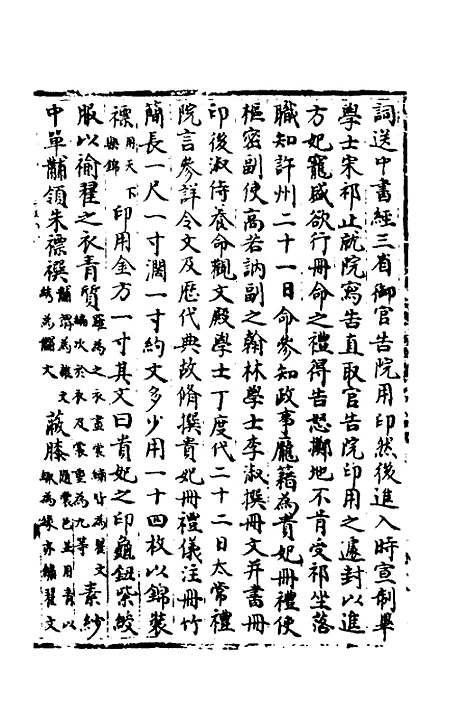 詞送中書經三省御官告院用印然後進入時宣制畢
學士宋祁止就院寫告直取官告院印用之遽封以進
方妃寵盛欲行冊命之禮得告怒擲地不肯受祁坐落
職知許州二十一日命參知政事龐籍為貴妃冊禮使
樞密副使高若訥副之翰林學士李淑撰冊文并書冊
印後淑侍養命觀文殿學士丁度代二十二日太常禮
院言參詳令文及歷代典故脩撰貴妃冊禮儀注冊竹
簡長一尺一寸濶一寸約文多少用一十四枚以錦裝
褾用天下樂錦印用金方一寸其文曰貴妃之印龜鈕紫綬
服以褕翟之衣青質羅為之衣畫裳繡皆為翟文編次於衣及裳重為九等素紗
中單黼領朱褾襈黼為雜文綉為黼文蔽膝隨裳色並用青以緅為緣亦繡翟文